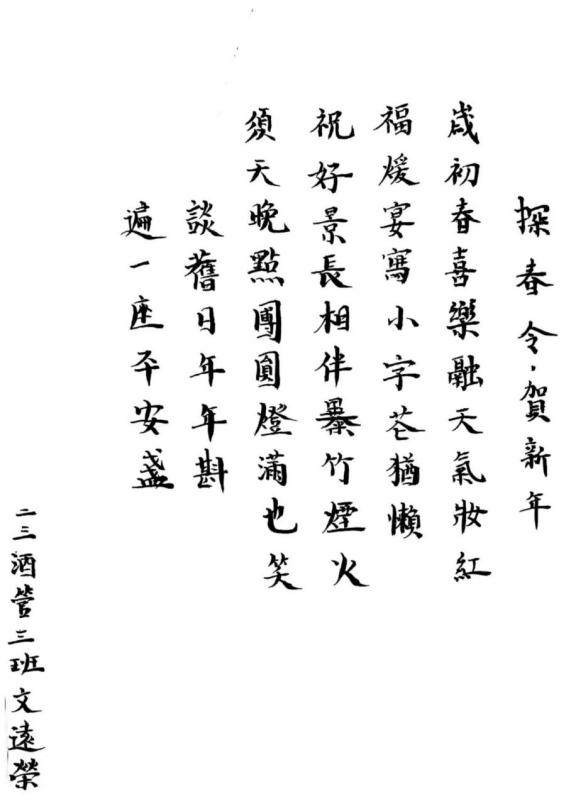 探春令·賀新年
歲初春喜樂融天氣妝紅
福煖宴寫小字芲猶懶
祝好景長相伴暴竹煙火
須天晚點團圓燈滿也笑
談舊日年年斟
遍一座平安盞
二三酒管三班文遠榮